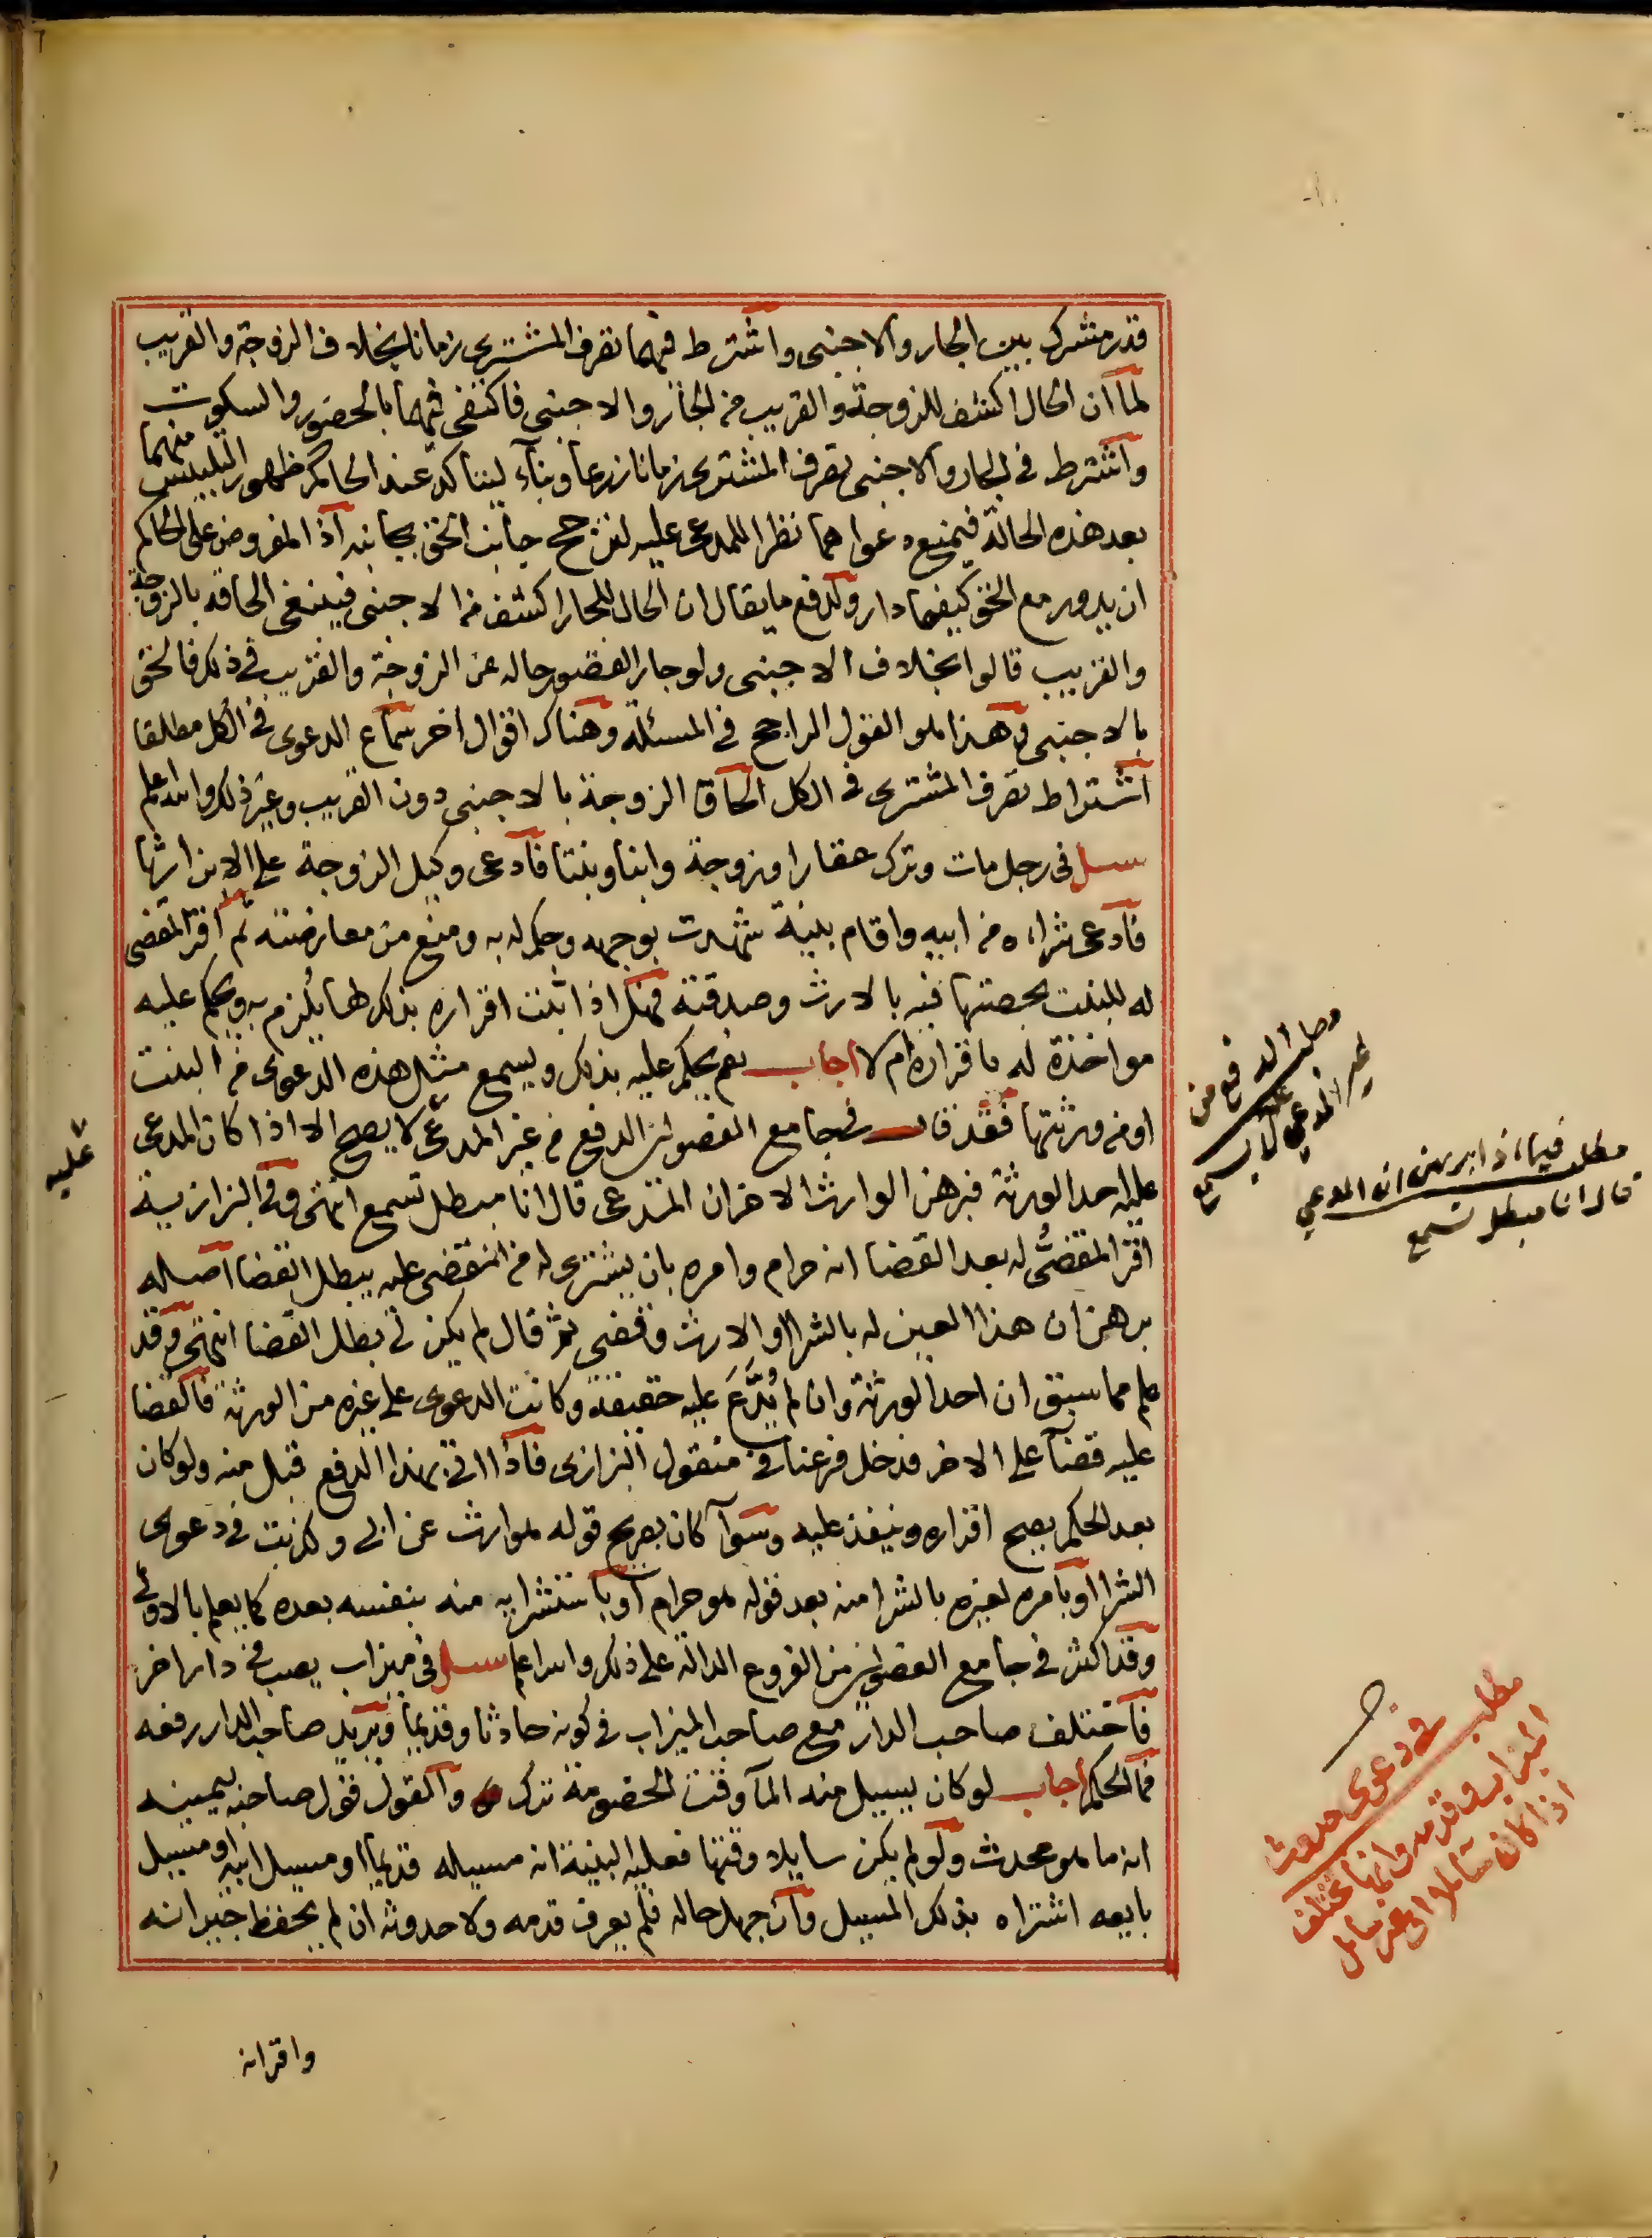 قدر مشترك بين الجار والاجنبي واشترط فيهما تصرف المشتري زمانا بخلاف الزوجة والقريب
لما ان الحال اكشف للزوجة والقريب من الجار والاجنبي فاكتفي فيهما بالحضور والسكوت منهما
واشترط في الجار والاجنبي تصرف المشتري زمانا زرعا وبناء ليتاكد عند الحاكم ظهور التلبيس
بعد هذه الحالة فيمنع دعواهما نظرا للمدعى عليه لترجح جانب الحق بجانبه اذ المفروض على الحاكم
ان يدور مع الحق كيفما دار ولدفع ما يقال ان الحال للجار اكشف من الاجنبي فينبغي الحاقه بالزوجة
والقريب قالوا بخلاف الاجنبي ولو جارا لقصور حاله عن الزوجة والقريب في ذلك فالحق
بالاجنبي وهذا هو القول الراجح في المسئلة وهناك اقوال اخر سماع الدعوى في الكل مطلقا
اشتراط تصرف المشتري في الكل الحاق الزوجة بالاجنبي دون القريب وغير ذلك والله اعلم
سئل في رجل مات وترك عقارا وزوجة وابنا وبنتا فادعى وكيل الزوجة على الابن ارثها
فادعى شراءه من ابيه واقام بينة شهدت بوجهه وحكم له به ومنع من معارضته ثم اقر المقضى
له للبنت بحصتها فيه بالارث وصدقته فهل اذا ثبت اقراره بذلك لها يلزم به ويحكم عليه
مواخذة له باقراره ام لا اجاب نعم يحكم عليه بذلك ويسمع مثل هذه الدعوى من البنت
او من ورثتها فقد قال في جامع الفصولين الدفع من غير المدعى لا يصح الا اذا كان المدعى
عليه
عليه احد الورثة فبرهن الوارث الاخر ان المدعى قال انا مبطل تسمع انتهى وفي البزازية
اقر المقضي له بعد القضا انه حرام وامره بان يشتري له من المقضي عليه يبطل القضا اصله
برهن ان هذا العين له بالشرا او الارث وقضي ثم قال لم يكن لي بطل القضا انتهى وقد
علم مما سبق ان احد الورثة وان لم يُدَّعَ عليه حقيقة وكانت الدعوى على غيره من الورثة فالقضا
عليه قضا على الاخر فدخل فرعنا في منقول البزازي فاذا اتى بهذا الدفع قبل منه ولو كان
بعد الحكم يصح اقراره وينفذ عليه وسوا كان بصريح قوله هو ارث عن ابي وكذبت في دعوى
الشرا او بامره لغيره بالشرا منه بعد قوله هو حرام او باستشرايه منه بنفسه بعده كما يعلم بالاولى
وقد اكثر في جامع الفصولين من الفروع الدالة على ذلك والله اعلم سئل في ميزاب يصب في دار اخر
فاختلف صاحب الدار مع صاحب الميزاب في كونه حادثا وقديما ويريد صاحب الدار رفعه
فما الحكم اجاب لو كان يسيل منه الما وقت الخصومة ترك والقول قول صاحبه بيمينه
انه ما هو محدث ولو لم يكن سايلا وقتها فعليه البينة انه مسيله قديما او مسيل ابيه او مسيل
بايعه اشتراه بذلك المسيل وان جهل حاله فلم يعرف قدمه ولا حدوثه ان لم يحفظ جيرانه
واقرانه
مطلب الدفع من
غير المدعي عليه لا يسمع
مطلب فيما اذا برهن ان المدعي
قال انا مبطل تسمع
مطلب
في دعوى حدوث
الميزاب وقدمه وانها تختلف
اذا كان سايلا او غير سايل